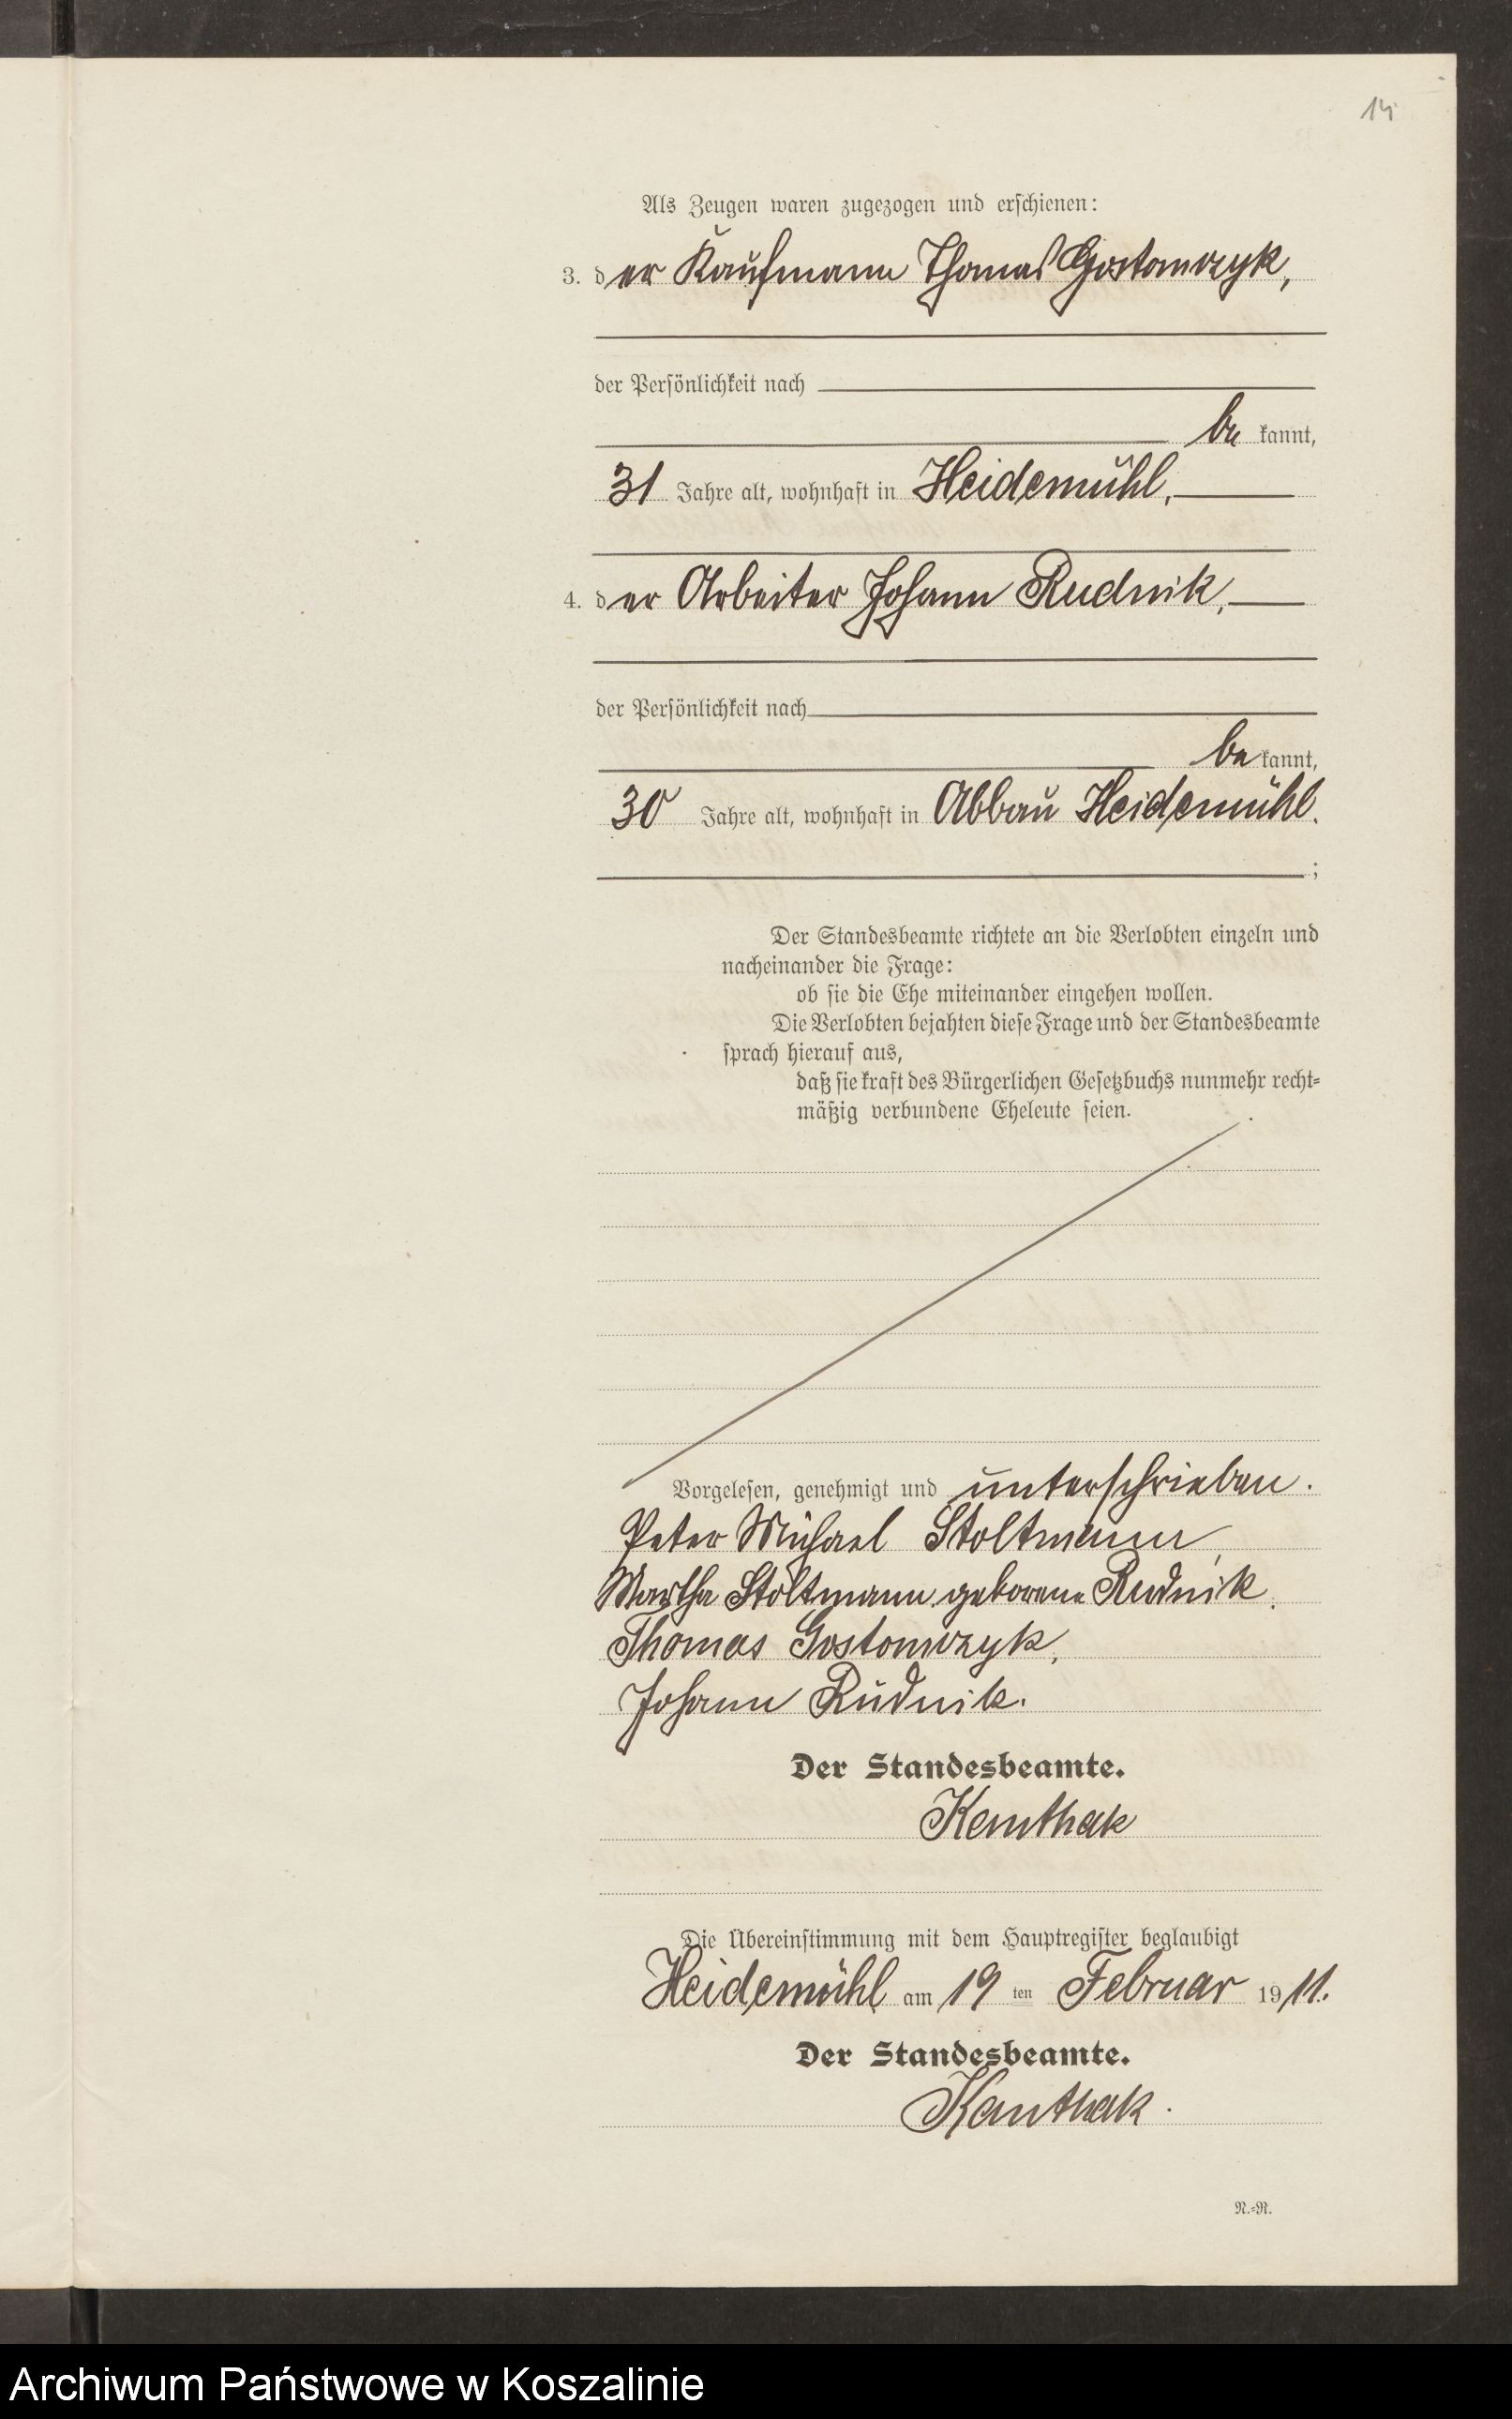 14
Als Zeugen waren zugezogen und erschienen:
3. der Kaufmann Thomas Gostomczyk,
der Persönlichkeit nach
be kannt,
31 Jahre alt, wohnhaft in Heidemühl,
4. der Arbeiter Johann Rudnik,
der Persönlichkeit nach
be kannt,
30 Jahre alt, wohnhaft in Abbau Heidemühl.
;
Der Standesbeamte richtete an die Verlobten einzeln und
nacheinander die Frage:
ob sie die Ehe miteinander eingehen wollen.
Die Verlobten bejahten diese Frage und der Standesbeamte
sprach hierauf aus,
daß sie kraft des Bürgerlichen Gesetzbuchs nunmehr recht-
mäßig verbundene Eheleute seien.
Vorgelesen, genehmigt und unterschrieben.
Peter Michael Stoltmann,
Martha Stoltmann geborene Rudnik.
Thomas Gostomczyk,
Johann Rudnik.
Der Standesbeamte.
Kanthak
Die Übereinstimmung mit dem Hauptregister beglaubigt
Heidemühl am 19 ten Februar 1911.
Der Standesbeamte.
Kanthak.
N.-R.
Archiwum Państwowe w Koszalinie